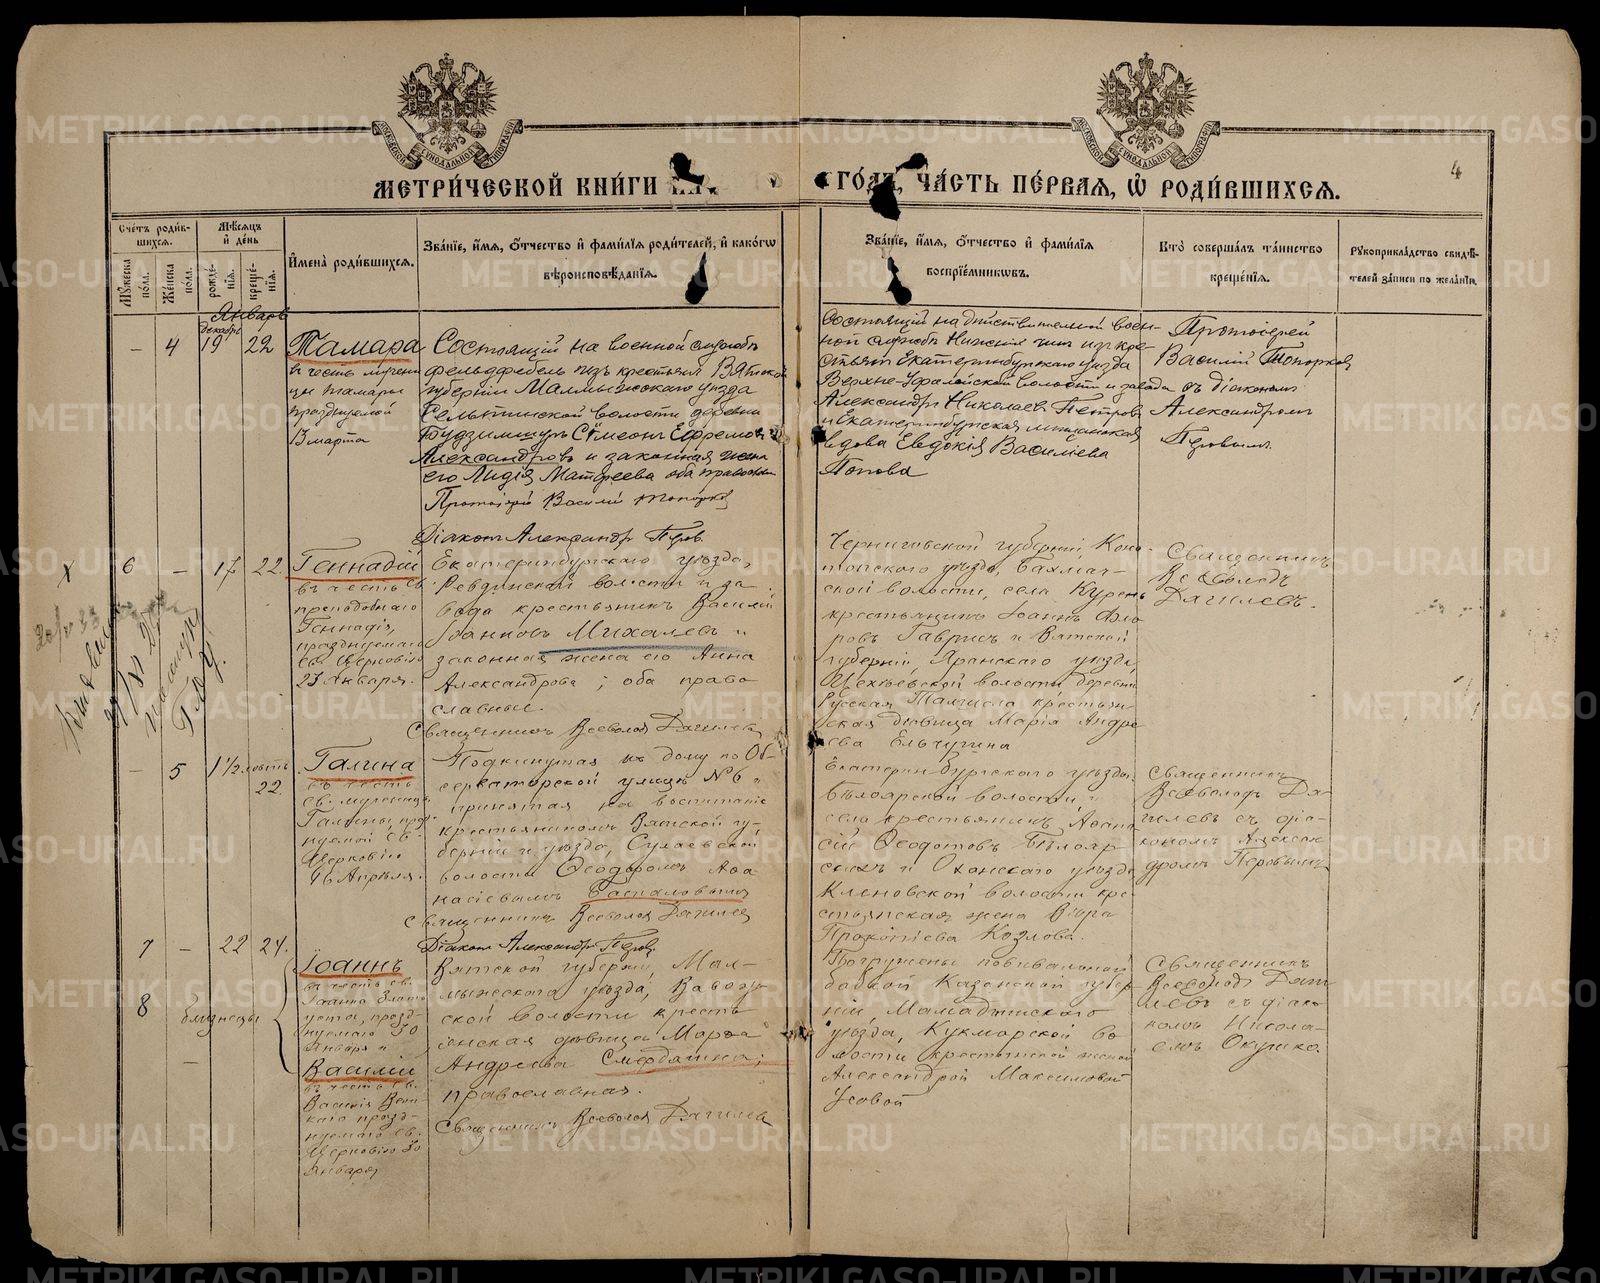 МЕТРИ́ЧЕСКОЙ КНИ́ГИ
ГО́ДЪ, ЧА́СТЬ ПЕ́РВАЯ, Ѡ҆ РОДИ́ВШИХСЯ.
4
Сче́тъ роди́в-
шихся.
Му́жеска по́ла.
Же́нска по́ла.
Мѣ́сяцъ и҆ де́нь
рожде́нїя.
креще́нїя.
И҆мена̀ роди́вшихся.
Зва́нїе, и҆́мя, ѻ҆́тчество и҆ фамѝлїя роди́телей, и҆ како́гѡ
вѣроисповѣ́данїя.
Зва́нїе, и҆́мя, ѻ҆́тчество и҆ фамѝлїя
воспрїе́мниковъ.
Кто̀ соверша́лъ та́инство
креще́нїя.
Рукоприкла́дство свидѣ́-
телей за́писи по жела́нїю.
Январь
– 4
декабрь
19 22
Тамара
въ честь мучени
цы Тамары
празднуемой
13 марта
Состоящій на военной службѣ
фельдфебель изъ крестьянъ Вятской
губерніи Малмыжскаго уѣзда
волости деревни
Сѵмеонъ Ефремовъ
Александровъ и законная жена
его Лидія Матфеева оба православн
Протоіерей Василій Топорков
Діаконъ Александръ Перов.
Состоящій на дѣйствительной воен-
ной службѣ Нижній чинъ изъ кре-
стьянъ Екатеринбургскаго уѣзда
Верхне-Уфалейской волости и завода
Александръ Николаевъ Петровъ
и Екатеринбургская мѣщанская
вдова Евдокія Василіева
Попова
Протоіерей
Василій Топорков
съ діакономъ
Александромъ
Перовымъ.
6 – 17 22
Геннадій
въ честь св.
преподобнаго
Геннадія,
празднуемаго
св. Церковію
23 Января.
Екатеринбургскаго уѣзда,
Ревдинской волости и за
вода крестьянинъ Василій
Іоанновъ Михалевъ и
законная жена его Анна
Александрова; оба право
славные.
Священникъ Всеволод Дягилев
Черниговской губерніи, Коно-
топскаго уѣзда, Бахмач-
ской волости, села Курень
крестьянинъ Іоаннъ Фло
ровъ Гаврись и Вятской
губерніи, Яранскаго уѣзда,
волости, деревни
Русская крестьян-
ская дѣвица Марія Андре
ева Ельчугина
Священникъ
Всеволодъ
Дягилевъ.
– 5 1½ 22
Галина
въ честь
св. мученицы
Галины, празд-
нуемой св.
Церковію
16 Апрѣля.
Подкинутая къ дому по Об-
серваторской улицѣ № 6 и
принятая на воспитаніе
крестьяниномъ Вятской гу-
берніи и уѣзда, Сулаевской
волости Ѳеодоромъ Аѳа
насіевымъ
Священникъ Всеволод Дягилев
Діаконъ Александръ Перов.
Екатеринбургскаго уѣзда,
Бѣлоярской волости и
села крестьянинъ Аѳана
сій Ѳеодотовъ Бѣлояр-
скихъ и Оханскаго уѣзда
Кленовской волости кре-
стьянская жена Вѣра
Прокопіева Козлова.
Священникъ
Всеволодъ Дя-
гилевъ съ діа-
кономъ Алексан
дромъ Перовымъ
7 – 22 24.
8 близнецы –
Іоаннъ
въ честь св.
Іоанна Злато
уста, празд-
нуемаго 30
Января и
Василій
въ честь св.
Василія Вели-
каго празд-
нуемаго св.
Церковію 30
Января
Вятской губерніи, Мал-
мыжскаго уѣзда, Вавож-
ской волости крестъ
янская дѣвица Марѳа
Андреева Смердягина;
православная.
Священникъ Всеволод Дягилев
Погружены повивальной
бабкой Казанской губер
ніи, Мамадышскаго
уѣзда, Кукморской во
лости крестьянской женой
Александрой Максимовой
Усовой
Священникъ
Всеволодъ Дяги
левъ съ діако-
номъ Никола-
емъ